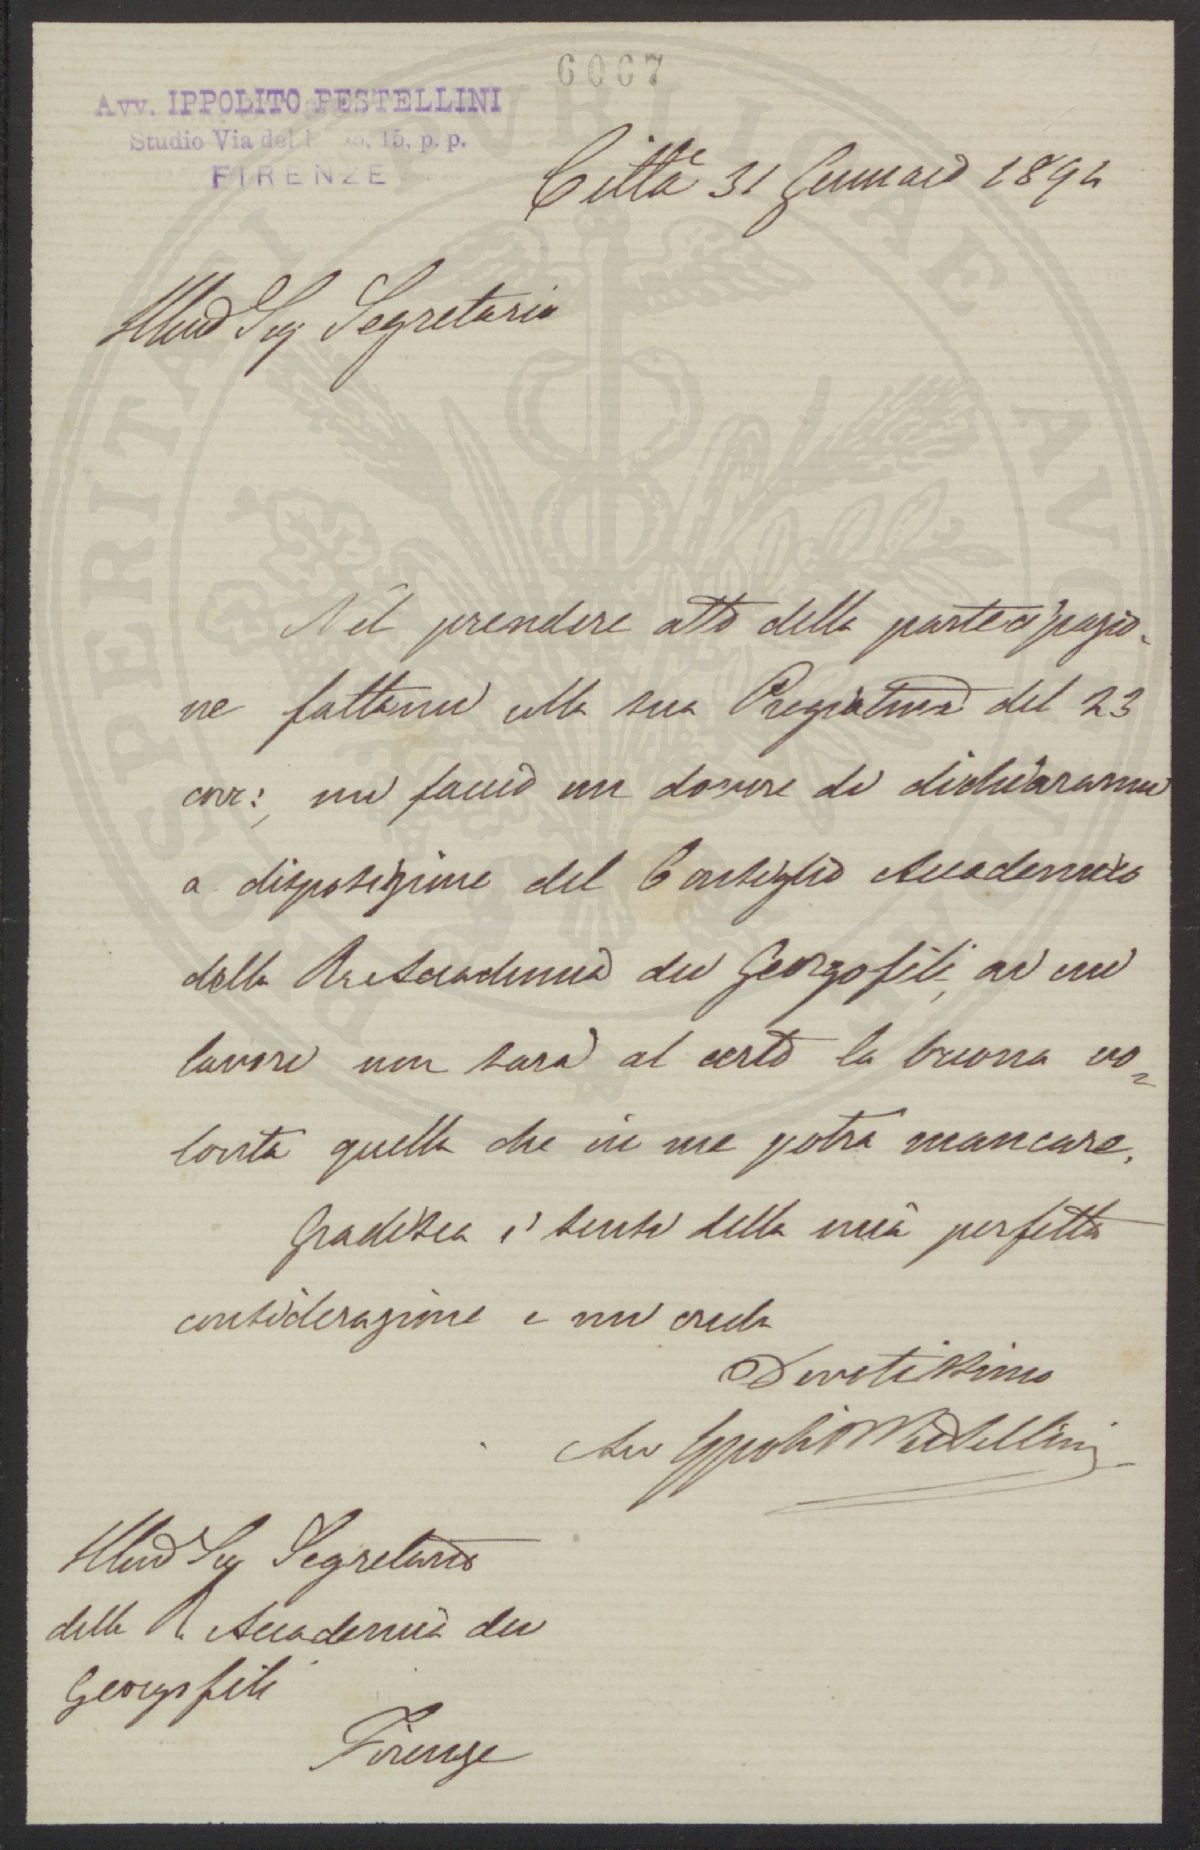 6067
Avv. IPPOLITO PESTELLINI
Studio Via del 15, p. p.
FIRENZE
Città 31 Gennaio 1894
Illmo Sig Segretario
Nel prendere atto della partecipazio-
ne fattami colla sua Pregiatma del 23
corr:, mi faccio un dovere di dichiararmi
a disposizione del Consiglio Accademico
della R. Accademia dei Georgofili, ai cui
lavori non sarà al certo la buona vo=
lontà quella che in me potrà mancare.
Gradisca i sensi della mia perfetta
considerazione e mi creda
Devotissimo
Avv Ippolito Pestellini
Illmo Sig Segretario
della R. Accademia dei
Georgofili
Firenze
PROSPERITATI PUBLICAE AUGENDAE